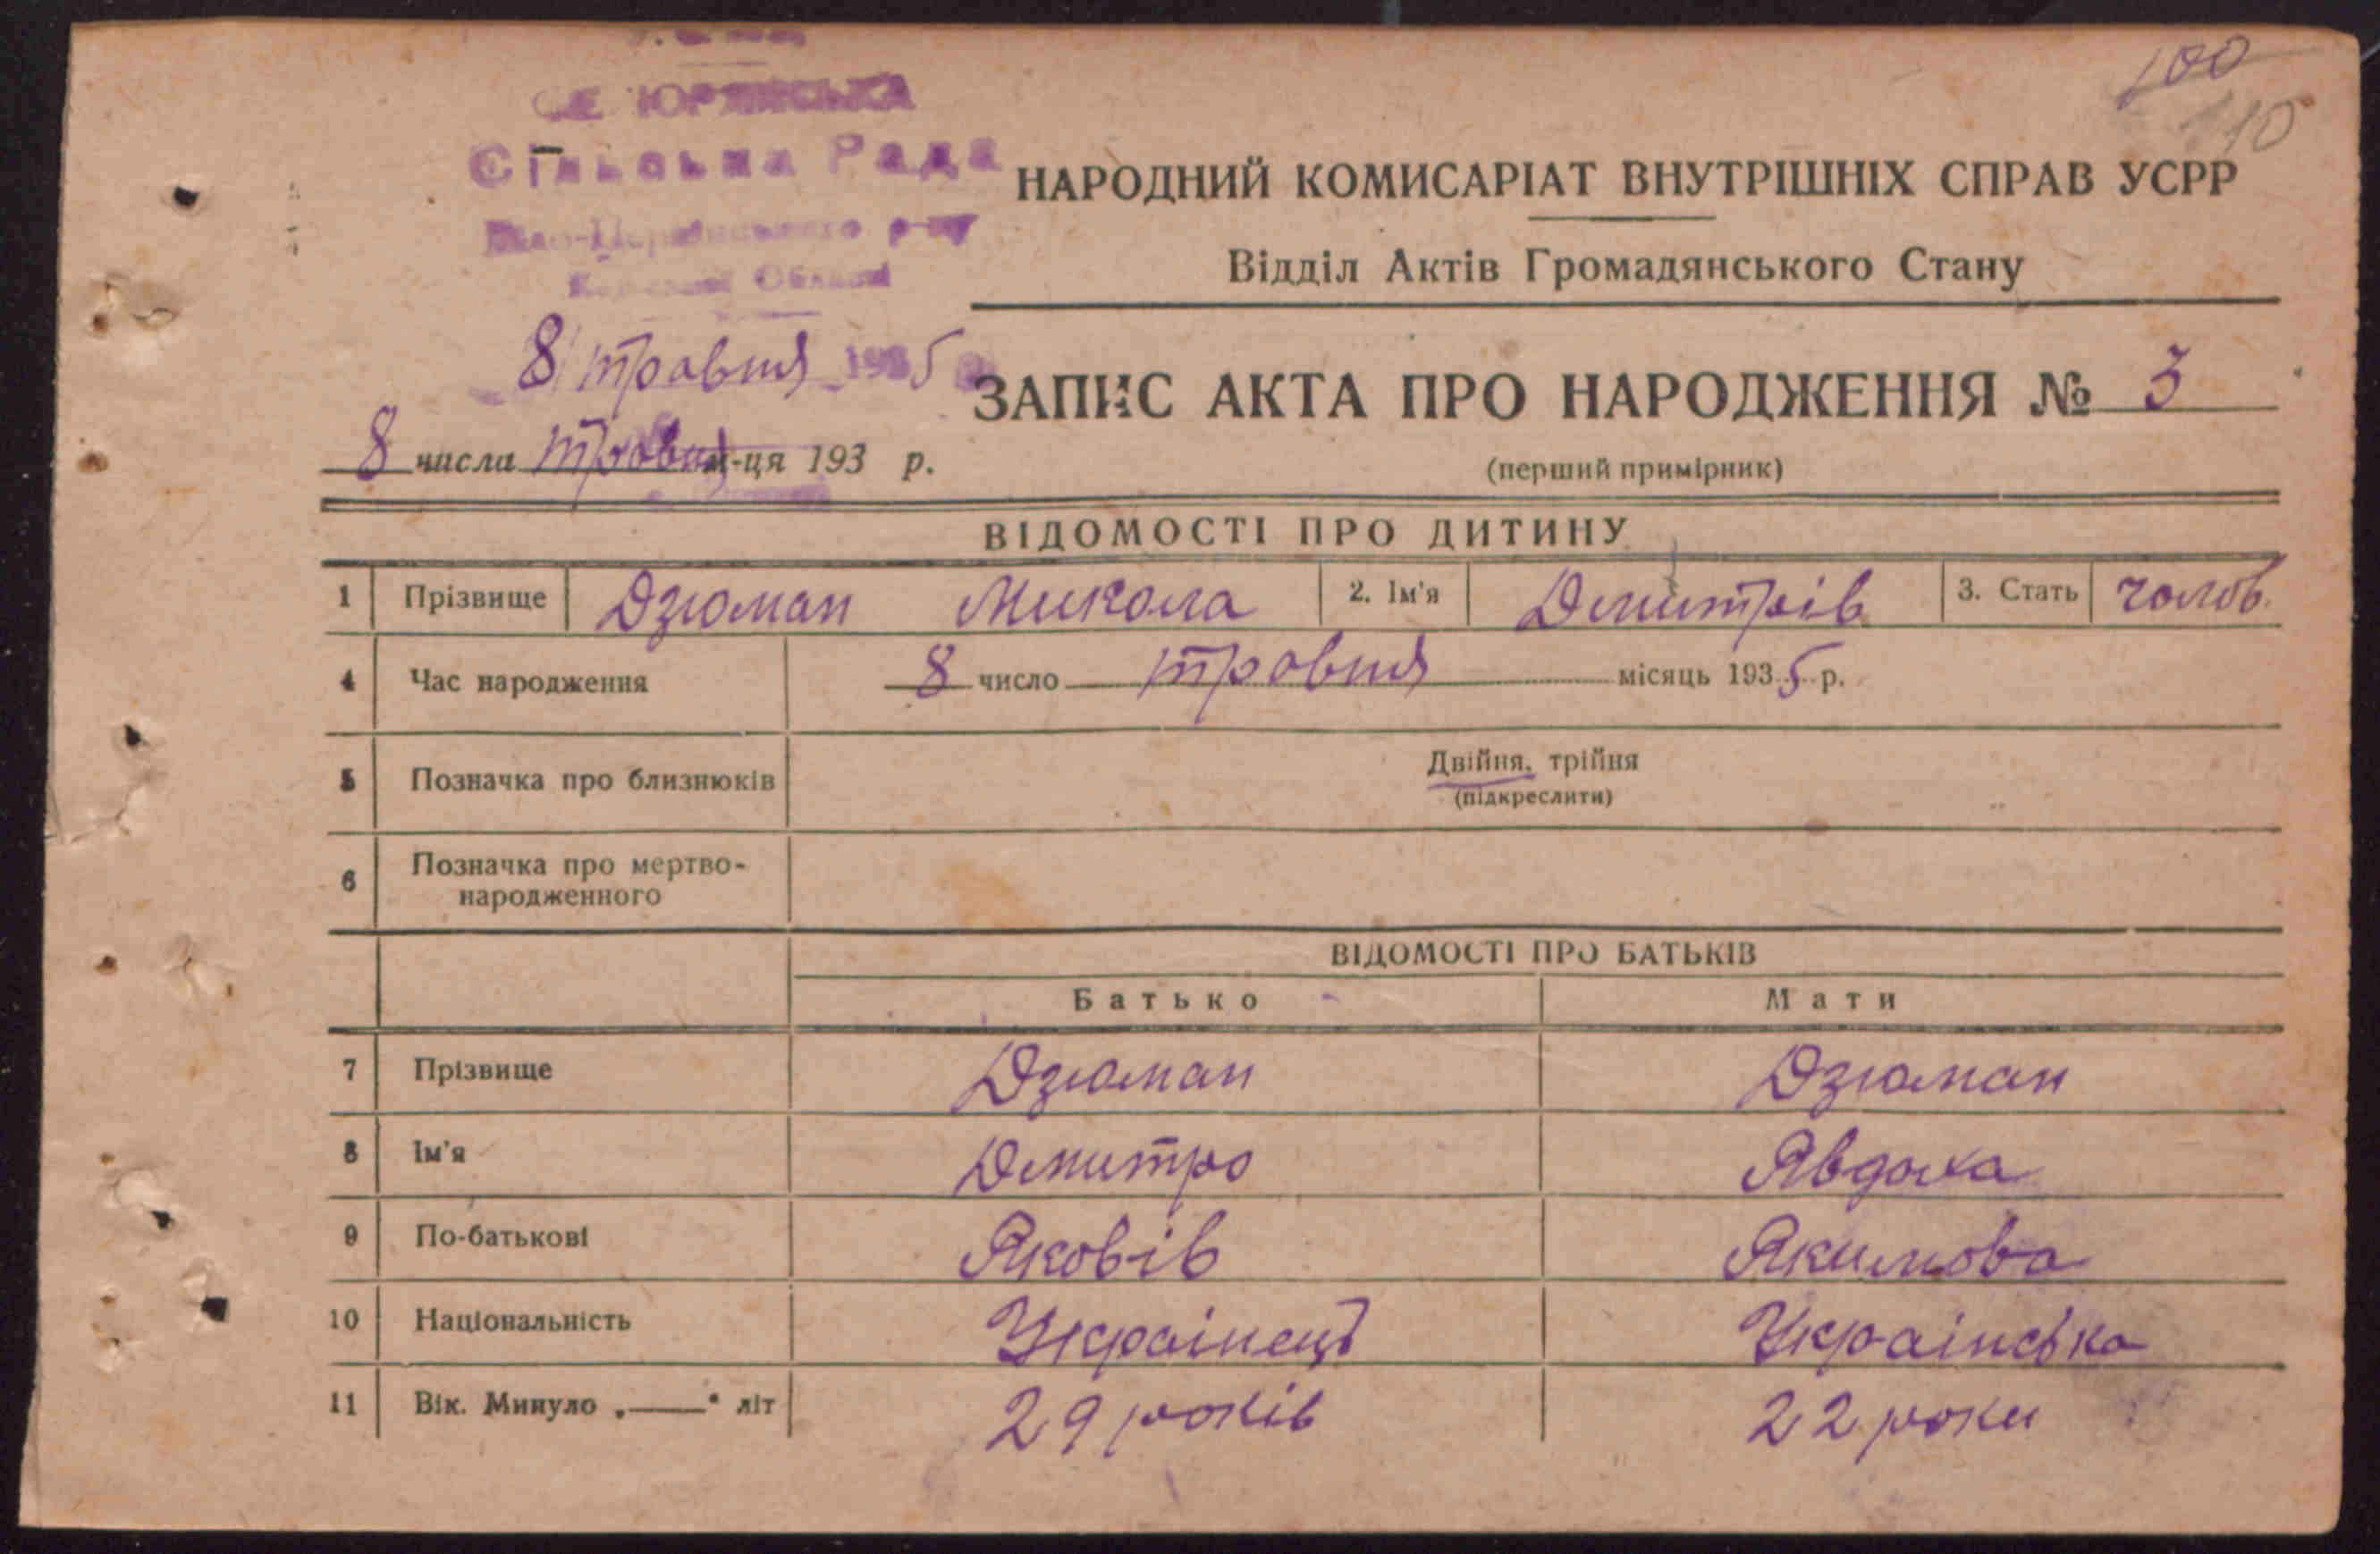 100
110
Сільська Рада
р-ну
Області
НАРОДНИЙ КОМИСАРІАТ ВНУТРІШНІХ СПРАВ УСРР
Відділ Актів Громадянського Стану
8 травня 1935
ЗАПИС АКТА ПРО НАРОДЖЕННЯ № 3
8 числа травня м-ця 193 р.
(перший примірник)
ВІДОМОСТІ ПРО ДИТИНУ
1 Прізвище Дзюман Микола 2. Ім'я Дмитрів 3. Стать чолов.
4 Час народження 8 число травня місяць 1935 р.
5 Позначка про близнюків Двійня, трійня
(підкреслити)
6 Позначка про мертво-
народженного
ВІДОМОСТІ ПРО БАТЬКІВ
Батько Мати
7 Прізвище Дзюман Дзюман
8 Ім'я Дмитро Явдоха
9 По-батькові Яковів Якимова
10 Національність Українець Українська
11 Вік. Минуло „——“ літ 29 років 22 роки